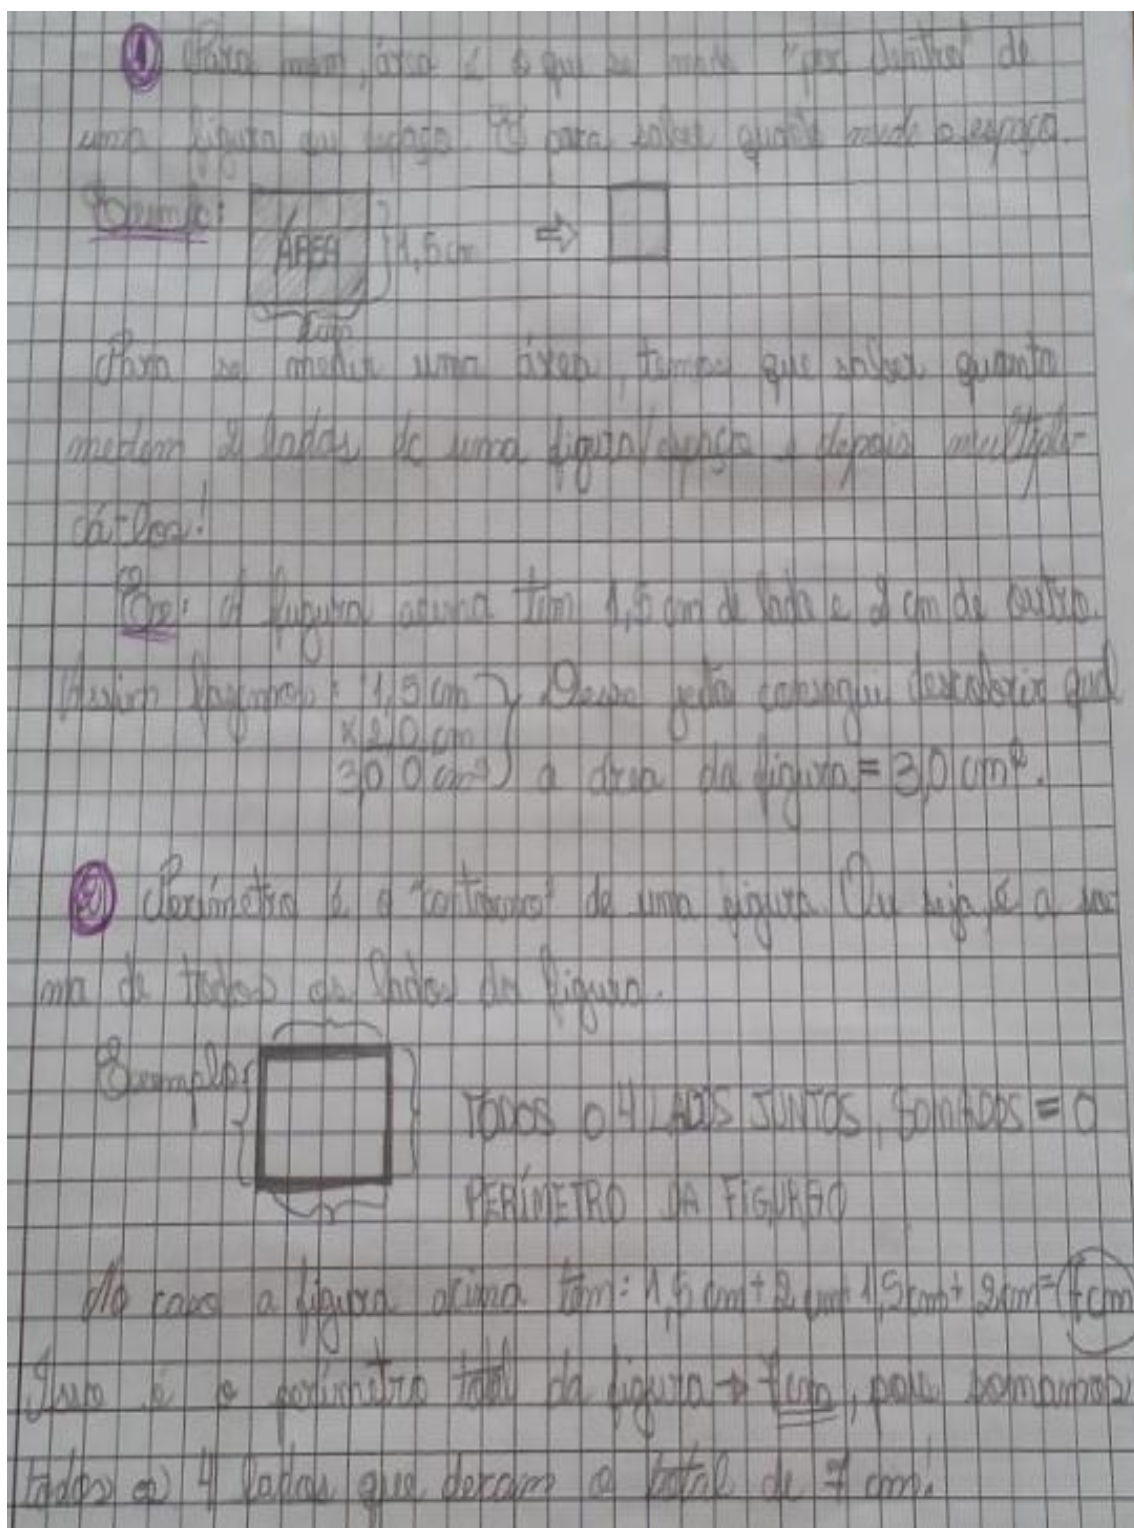 1 Para mim, área é o que se mede "por dentro" de
uma figura ou espaço. É para saber quanto mede o espaço.
Exemplo: ÁREA 1,5 cm ⇒
2 cm
Para se medir uma área, temos que saber quanto
medem 2 lados de uma figura/espaço e depois multipli-
cá-los!
Ex: A figura acima tem 1,5 cm de lado e 2 cm de outro.
Assim fazemos: 1,5 cm } Desse jeito consegui descobrir qual
x 2,0 cm
3,00 cm² a área da figura = 3,0 cm².
2 Perímetro é o "contorno" de uma figura. Ou seja, é a so
ma de todos os lados da figura.
Exemplo:
TODOS O 4 LADOS JUNTOS, SOMADOS = O
PERÍMETRO DA FIGURA
No caso a figura acima tem: 1,5 cm + 2 cm + 1,5 cm + 2 cm = 7 cm
Isso é o perímetro total da figura → 7 cm, pois somamos
todos os 4 lados que deram o total de 7 cm!